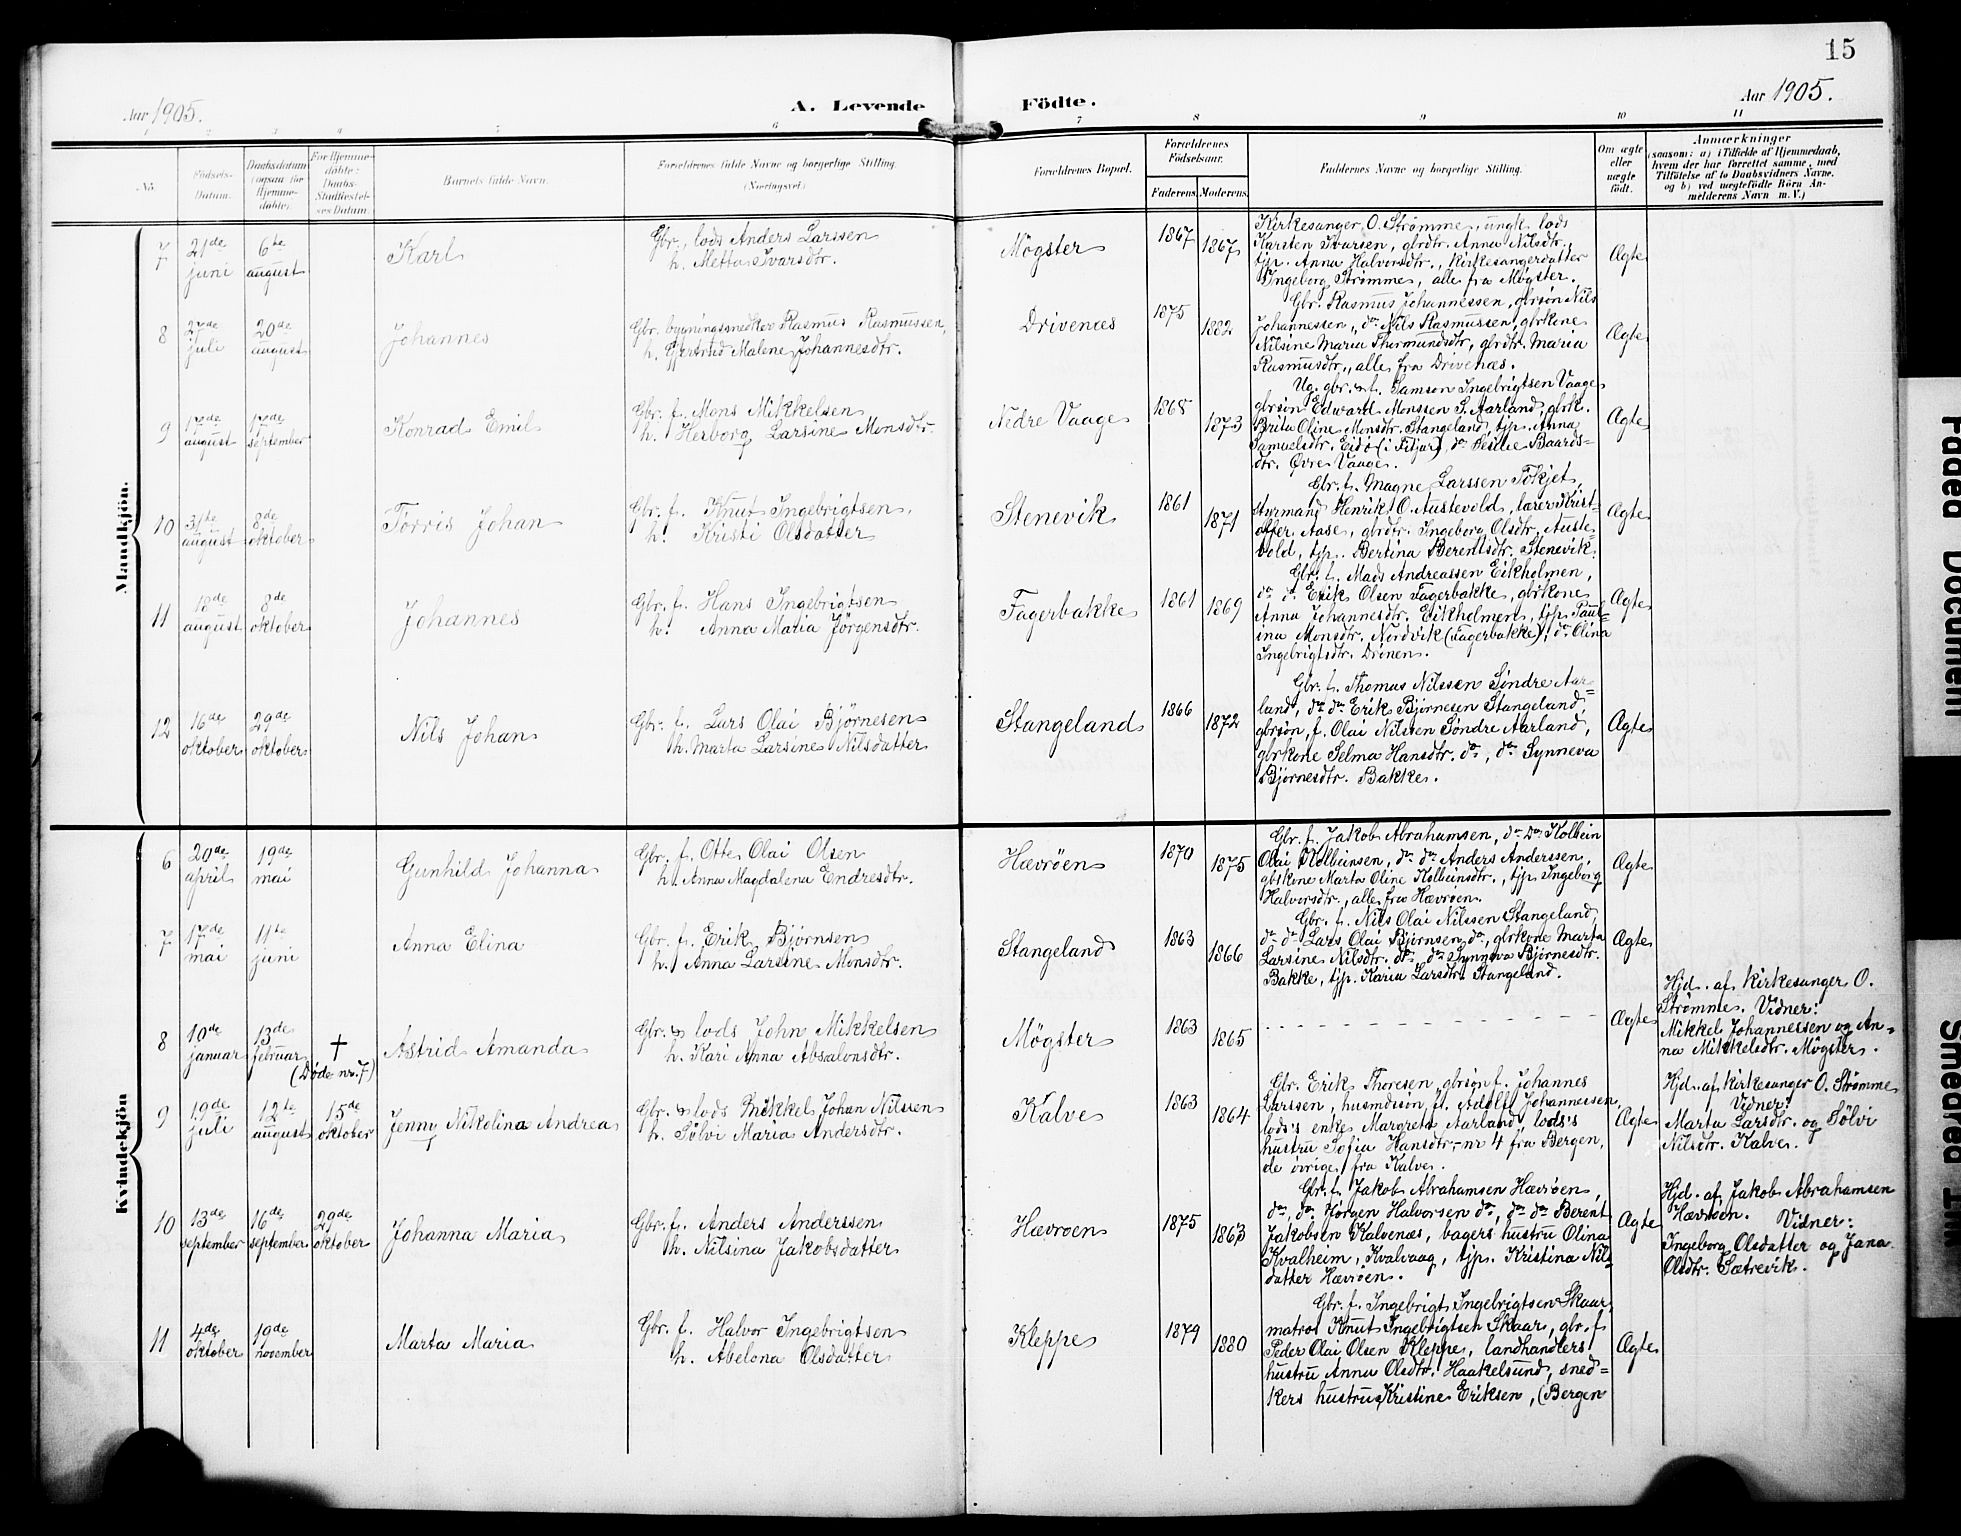 15
Aar 1905.
A. Levende Födte.
Aar 1905.
6 7 8 9 10 11
No.
Födsels-
Datum.
Daabsdatum
(ogsaa for
Hjemme-
döbte).
For Hjemme-
döbte:
Daabs-
Stadfæstel-
ses Datum.
Barnets fulde Navn.
Forældrenes fulde Navne og borgerlige Stilling.
(Næringsvei)
Forældrenes Bopæl.
Forældrenes
Födselsaar.
Faderens. Moderens.
Faddernes Navne og borgerlige Stilling.
Om ægte
eller
uægte
født.
Anmærkninger
(saasom: a) i Tilfælde af Hjemmedaab,
hvem der har forrettet samme, med
Tilföielse af to Daabsvidners Navne.
og b) ved uægtefödte Börn An-
melderens Navn m. V.)
Mandkjön.
7
21de
juni
6te
august
Karl
Gbr., lods Anders Larssen
h. Metta Ivarsdtr.
Møgster
1867
1867
Kirkesanger O. Strømme, ungk. lods
Karsten Ivarsen, gbrdtr. Anna Nilsdtr.,
tjp. Anna Halvorsdtr., kirkesangerdatter
Ingeborg Strømme, alle fra Møgster.
Ægte
8
27de
juli
20de
august
Johannes
Gbr. bygningssnedker Rasmus Rasmussen,
h. Gjertrud Malene Johannesdtr.
Drivenæs
1875
1882
Gbr. Rasmus Johannessen, gbrsøn Nils
Johannessen, do Nils Rasmussen, gbrkone
Nilsine Maria Thormundsdtr, gbrdtr. Maria
Rasmusdtr., alle fra Drivenæs.
Ægte
9
17de
august
17de
september
Konrad Emil
Gbr. f. Mons Mikkelsen
h. Herborg Larsine Monsdtr.
Nedre Vaage
1868
1873
Ug. gbr. & f. Samson Ingebrigtsen Vaage,
gbrsøn Edward Monssen S. Aarland, gbrk.
Brita Oline Monsdtr. Stangeland, tjp. Anna
Samuelsdtr. Eidø (i Fitjar), do Baards-
dtr. Øvre Vaage.
Ægte
10
31te
august
8de
oktober
Torris Johan
Gbr. f. Knut Ingebrigtsen,
h. Kristi Olsdatter
Stenevik
1861
1871
Gbr. f. Magne Larssen Tøkjet,
styrmand Henrik O. Austevold, lærer Krist-
offer Aase, gbrdtr. Ingeborg Olsdtr. Auste-
vold, tjp. Bertina Berentsdtr. Stenevik.
Ægte
11
18de
august
8de
oktober
Johannes
Gbr. f. Hans Ingebrigtsen
h. Anna Maria Jørgensdtr.
Fagerbakke
1861
1869
Gbr. f. Mads Andreassen Eikholmen,
do do Erik Olsen Fagerbakke, gbrkone
Anna Johannesdtr. Eikholmen, tjp. Paul-
ina Monsdtr. Nordvik (Fagerbakke), do Olina
Ingebrigtsdtr. Drønen.
Ægte
12
16de
oktober
29de
oktober
Nils Johan
Gbr. f. Lars Olai Bjørnesen
h. Marta Larsine Nilsdatter
Stangeland
1866
1872
Gbr. f. Thomas Nilssen Søndre Aar-
land, do do Erik Bjørnesen Stangeland,
gbrsøn, f. Olai Nilssen Søndre Aarland,
gbrkone Selma Hansdtr. do, do Synneva
Bjørnesdtr. Bakke.
Ægte
Kvindekjön
6
20de
april
19de
mai
Gunhild Johanna
Gbr. f. Otte Olai Olsen
h. Anna Magdalena Endresdtr.
Hævrøen
1870
1875
Gbr. f. Jakob Abrahamsen, do do Kolbein
Olai Kolbeinsen, do do Anders Anderssen,
gbrkone Marta Oline Kolbeinsdtr., tjp. Ingeborg
Halvorsdtr., alle fra Hævrøen.
Ægte
7
17de
mai
11te
juni
Anna Elina
Gbr. f. Erik Bjørnsen
h. Anna Larsine Monsdtr.
Stangeland
1863
1866
Gbr. f. Nils Olai Nilssen Stangeland,
do do Lars Olai Bjørnsen do, gbrkone Marta
Larsine Nilsdtr. do, do Synneva Bjørnesdtr.
Bakke, tjp. Karia Larsdtr. Stangeland.
Ægte
8
10de
januar
13de
februar
†
(Døde nr. 7)
Astrid Amanda
Gbr. & lods John Mikkelsen
h. Kari Anna Absalonsdtr.
Møgster
1863
1865
Ægte
Hjd. af kirkesanger O.
Strømme. Vidner:
Mikkel Johannessen og An-
na Mikkelsdtr. Møgster.
9
19de
juli
12te
august
15de
oktober
Jenny Nikolina Andrea
Gbr. & lods Mikkel Johan Nilssen
h. Sølvi Maria Andersdtr.
Kalve
1863
1864
Gbr. Erik Thoresen, gbrsøn f. Johannes
Larssen, husmdsøn, f. Adolf Johannessen,
lods's enke Margreta Aarland, lods's
hustru Sofia Hansdtr., - nr 4 fra Bergen,
de øvrige fra Kalve.
Ægte
Hjd. af kirkesanger O. Strømme
Vidner:
Marta Larsdtr. og Sølvi
Nilsdtr. Kalve.
10
13de
september
16de
september
29de
oktober
Johanna Maria
Gbr. f. Anders Anderssen
h. Nilsina Jakobsdatter
Hævroen
1875
1863
Gbr. f. Jakob Abrahamsen Hævrøen,
do, do Jørgen Halvorsen do, do do Berent
Jakobsen Kalvenæs, bagers hustru Olina
Kvalheim, Kvalvaag, tjp. Kristina Nils-
datter Hævrøen.
Ægte
Hjd. af Jakob Abrahamsen
Hævrøen. Vidner:
Ingeborg Olsdatter og Jana
Olsdtr. Sætrevik.
11
4de
oktober
19de
november
Marta Maria
Gbr. f. Halvor Ingebrigtsen
h. Abelona Olsdatter
Kleppe
1879
1880
Gbr. f. Ingebrigt Ingebrigtsen Skaar,
matros Knut Ingebrigtsen Skaar, gbr. f.
Peder Olai Olsen Kleppe, landhandlers
hustru Anna Olsdtr. Haakelsund, sned-
kers hustru Kristine Eriksen, (Bergen
Ægte
Faded Document
Smeared Ink